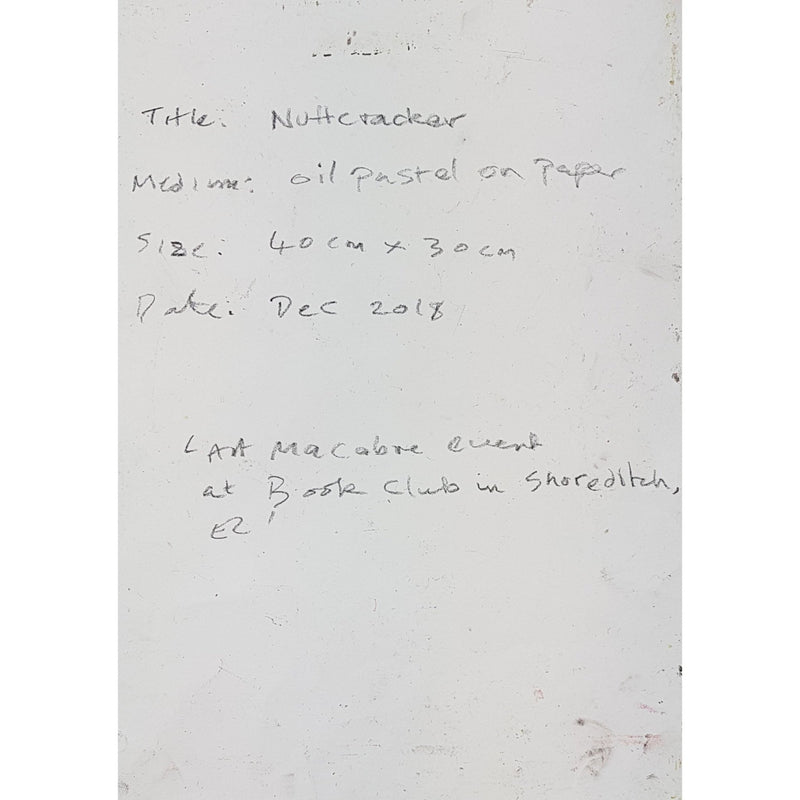 Title: Nuttcracker
Medium: oil pastel on Paper
Size: 40cm x 30cm
Date: Dec 2018
Art Macabre event
at Book Club in Shoreditch,
E2